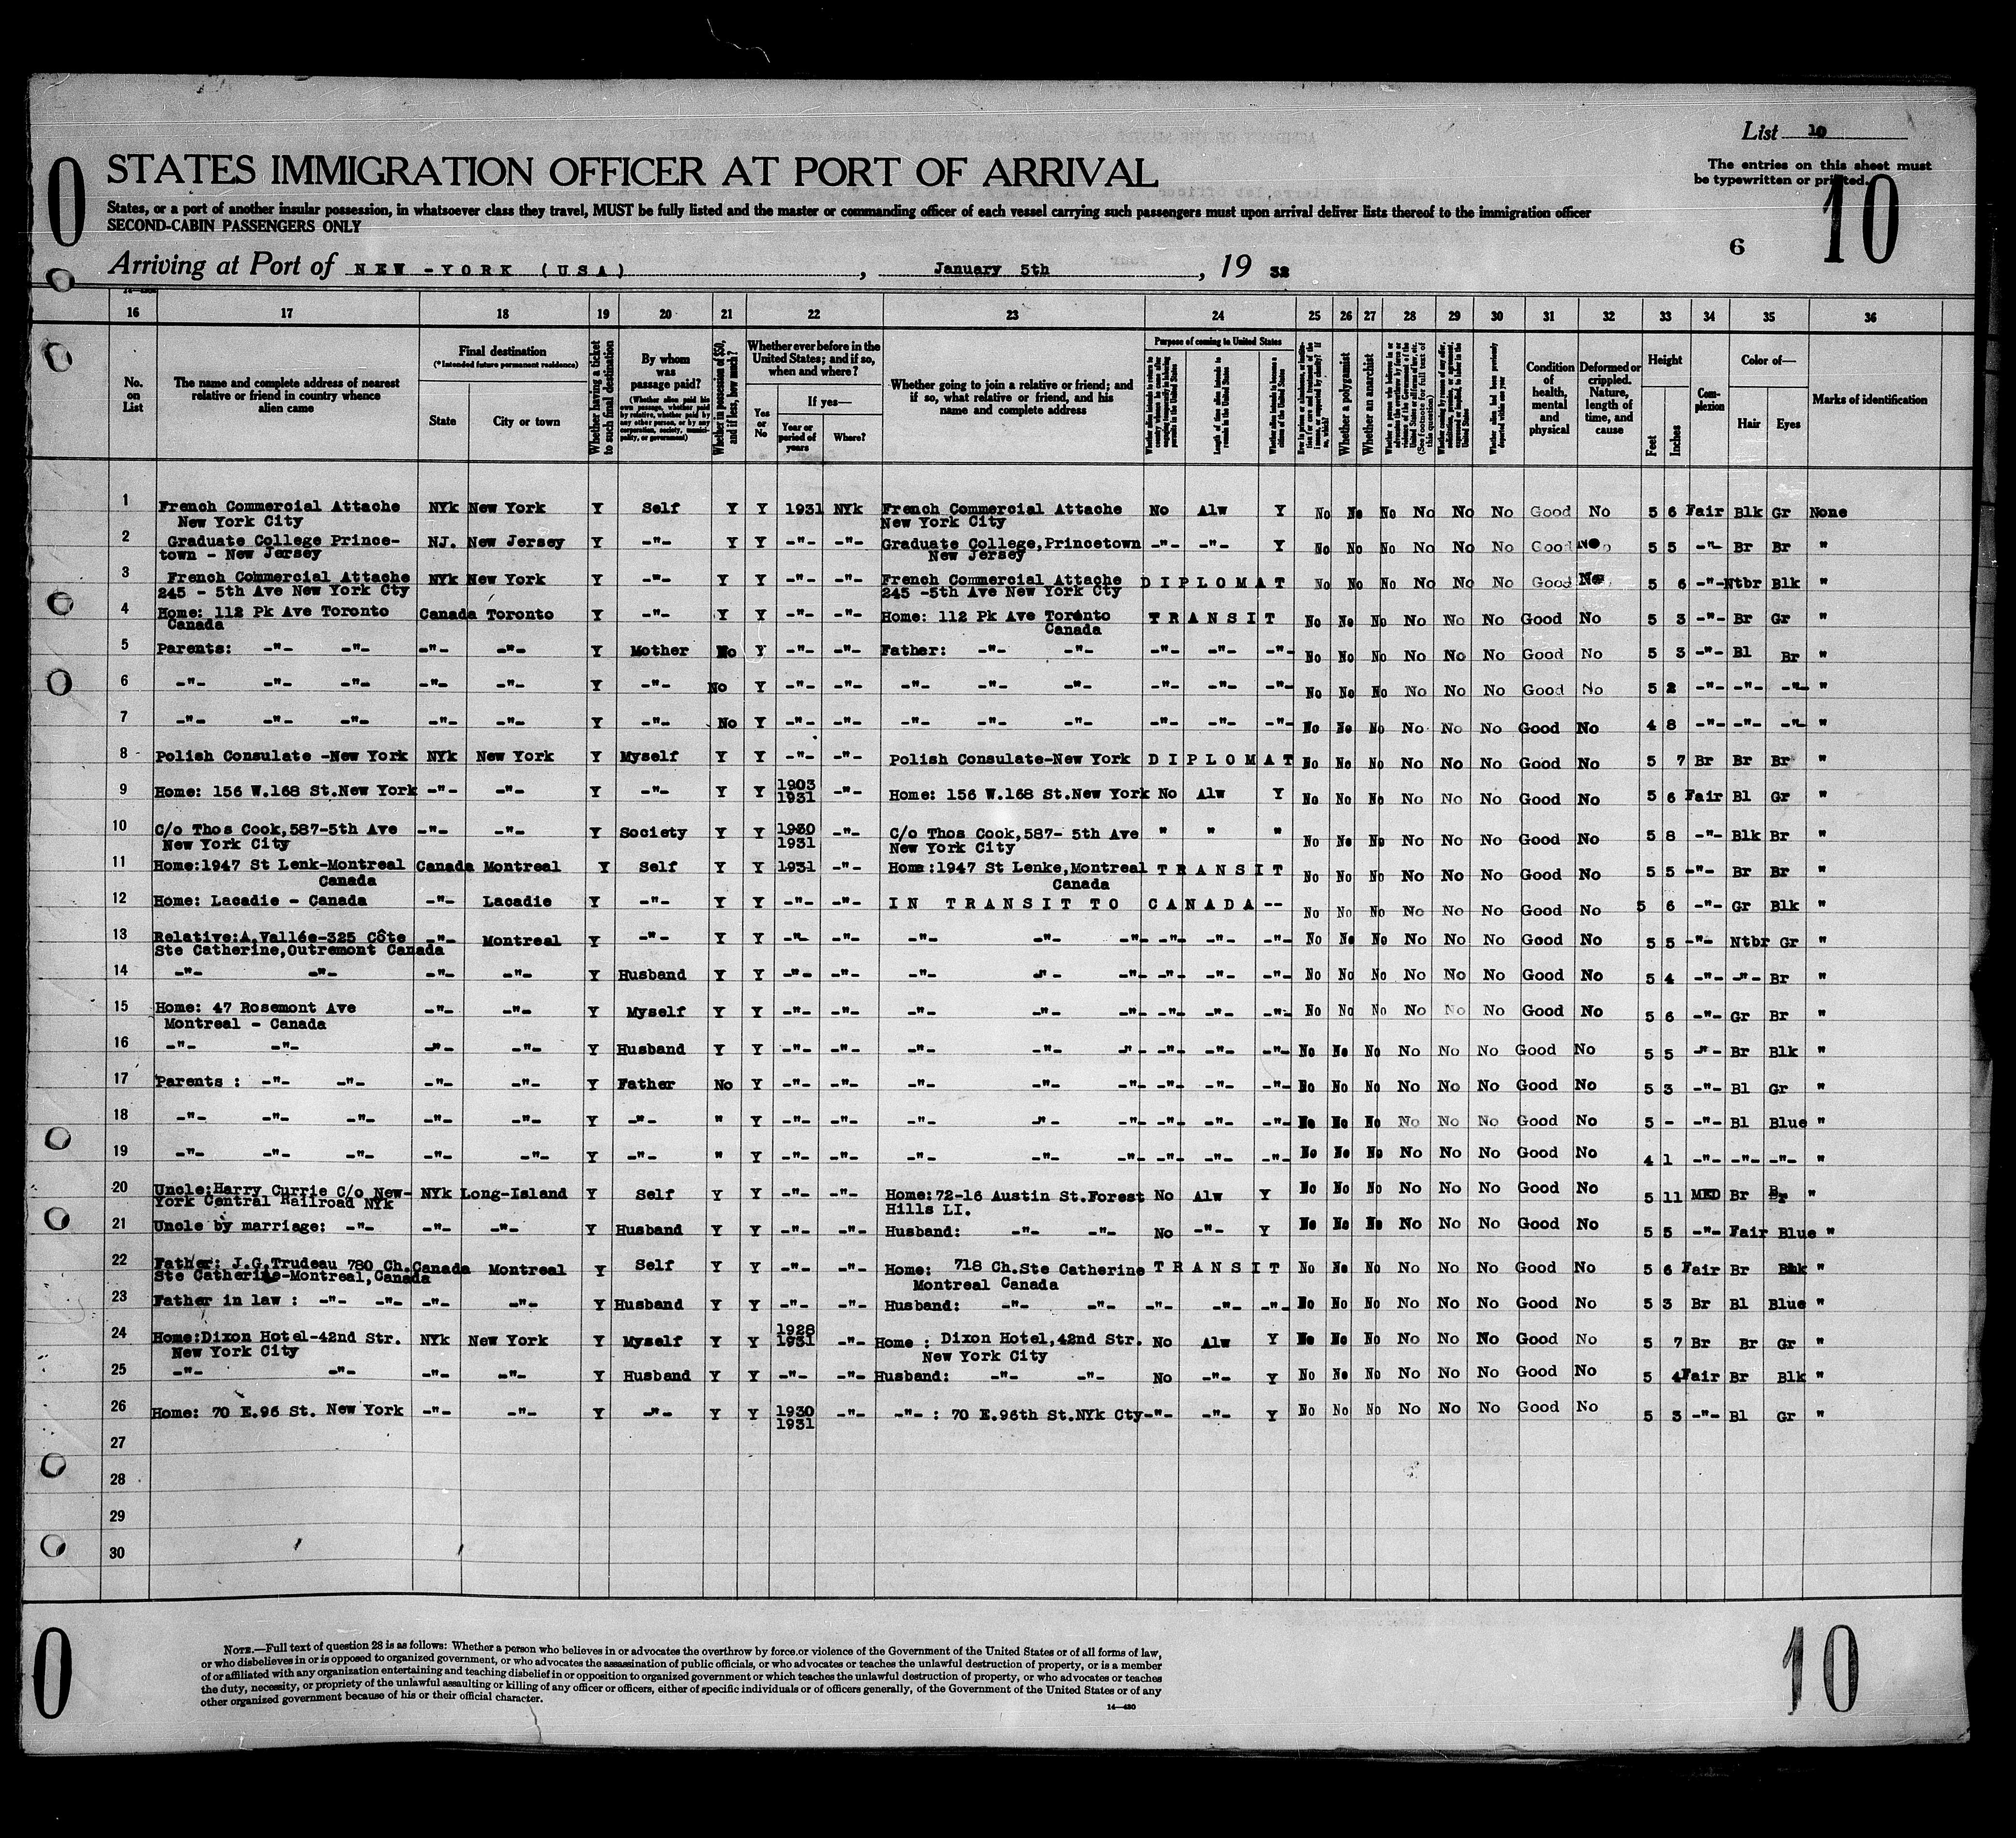 List 10
The entries on this sheet must
be typewritten or printed.
0
10
STATES IMMIGRATION OFFICER AT PORT OF ARRIVAL
States, or a port of another insular possession, in whatsoever class they travel, MUST be fully listed and the master or commanding officer of each vessel carrying such passengers must upon arrival deliver lists thereof to the immigration officer
SECOND-CABIN PASSENGERS ONLY
6
Arriving at Port of NEW -YORK (USA), January 5th, 19 32
16 17 18 19 20 21 22 23 24 25 26 27 28 29 30 31 32 33 34 35 36
No. on List
The name and complete address of nearest relative or friend in country whence alien came
Final destination (*Intended future permanent residence)
State
City or town
Whether having a ticket to such final destination
By whom was passage paid?
(Whether alien paid his own passage, whether paid by relative, whether paid by any other person, or by any corporation, society, municipality, or government)
Whether in possession of $50, and if less, how much?
Whether ever before in the United States; and if so, when and where?
Yes or No
If yes—
Year or period of years
Where?
Whether going to join a relative or friend; and if so, what relative or friend, and his name and complete address
Purpose of coming to United States
Length of time alien intends to remain in the United States
Whether alien intends to become a citizen of the United States
Whether a polygamist
Whether an anarchist
Whether alien had been previously deported within one year
Condition of health, mental and physical
Deformed or crippled. Nature, length of time, and cause
Height
Feet
Inches
Complexion
Color of—
Hair
Eyes
Marks of identification
1 French Commercial Attache NYk New York Y Self Y Y 1931 NYk French Commercial Attache No Alw Y No No No No No No Good No 5 6 Fair Blk Gr None
New York City New York City
2 Graduate College Prince- NJ. New Jersey Y -"- Y Y -"- -"- Graduate College,Princetown -"- -"- Y No No No No No No Good No 5 5 -"- Br Br "
town - New Jersey New Jersey
3 French Commercial Attache NYk New York Y -"- Y Y -"- -"- French Commercial Attache DIPLOMAT No No No No No No Good No 5 6 -"- Ntbr Blk "
245 - 5th Ave New York Cty 245 -5th Ave New York Cty
4 Home: 112 Pk Ave Toronto Canada Toronto Y -"- Y Y -"- -"- Home: 112 Pk Ave Toronto TRANSIT No No No No No No Good No 5 3 -"- Br Gr "
Canada Canada
5 Parents: -"- -"- -"- -"- Y Mother No Y -"- -"- Father: -"- -"- -"- -"- -"- No No No No No No Good No 5 3 -"- Bl Br "
6 -"- -"- -"- -"- -"- Y -"- No Y -"- -"- -"- -"- -"- -"- -"- -"- No No No No No No Good No 5 2 -"- -"- -"- "
7 -"- -"- -"- -"- -"- Y -"- No Y -"- -"- -"- -"- -"- -"- -"- -"- No No No No No No Good No 4 8 -"- -"- -"- "
8 Polish Consulate -New York NYk New York Y Myself Y Y -"- -"- Polish Consulate-New York DIPLOMAT No No No No No No Good No 5 7 Br Br Br "
9 Home: 156 W.168 St.New York -"- -"- Y -"- Y Y 1903 1931 -"- Home: 156 W.168 St.New York No Alw Y No No No No No No Good No 5 6 Fair Bl Gr "
10 C/o Thos Cook,587-5th Ave -"- -"- Y Society Y Y 1930 1931 -"- C/o Thos Cook,587- 5th Ave " " " No No No No No No Good No 5 8 -"- Blk Br "
New York City New York City
11 Home:1947 St Lenk-Montreal Canada Montreal Y Self Y Y 1931 -"- Home:1947 St Lenke,Montreal TRANSIT No No No No No No Good No 5 5 -"- Br Br "
Canada Canada
12 Home: Lacadie - Canada -"- Lacadie Y -"- Y Y -"- -"- IN TRANSIT TO CANADA-- No No No No No No Good No 5 6 -"- Gr Blk "
13 Relative:A.Vallée-325 Côte -"- Montreal Y -"- Y Y -"- -"- -"- -"- -"- -"- -"- -"- No No No No No No Good No 5 5 -"- Ntbr Gr "
Ste Catherine,Outremont Canada
14 -"- -"- -"- -"- Y Husband Y Y -"- -"- -"- -"- -"- -"- -"- -"- No No No No No No Good No 5 4 -"- -"- Br "
15 Home: 47 Rosemont Ave -"- -"- Y Myself Y Y -"- -"- -"- -"- -"- -"- -"- -"- No No No No No No Good No 5 6 -"- Gr Br "
Montreal - Canada
16 -"- -"- -"- -"- Y Husband Y Y -"- -"- -"- -"- -"- -"- -"- -"- No No No No No No Good No 5 5 -"- Br Blk "
17 Parents : -"- -"- -"- -"- Y Father No Y -"- -"- -"- -"- -"- -"- -"- -"- No No No No No No Good No 5 3 -"- Bl Gr "
18 -"- -"- -"- -"- -"- Y -"- " Y -"- -"- -"- -"- -"- -"- -"- -"- No No No No No No Good No 5 - -"- Bl Blue "
19 -"- -"- -"- -"- -"- Y -"- " Y -"- -"- -"- -"- -"- -"- -"- -"- No No No No No No Good No 4 1 -"- -"- -"- "
20 Uncle:Harry Currie C/o New- NYk Long-Island Y Self Y Y -"- -"- Home:72-16 Austin St.Forest No Alw Y No No No No No No Good No 5 11 MED Br Br "
York Central Railroad NYk Hills LI.
21 Uncle by marriage: -"- -"- -"- Y Husband Y Y -"- -"- Husband: -"- -"- No -"- Y No No No No No No Good No 5 5 -"- Fair Blue "
22 Father: J.G.Trudeau 780 Ch. Canada Montreal Y Self Y Y -"- -"- Home: 718 Ch.Ste Catherine TRANSIT No No No No No No Good No 5 6 Fair Br Blk "
Ste Catherine-Montreal,Canada Montreal Canada
23 Father in law : -"- -"- -"- -"- Y Husband Y Y -"- -"- Husband: -"- -"- -"- -"- -"- No No No No No No Good No 5 3 Br Bl Blue "
24 Home:Dixon Hotel-42nd Str. NYk New York Y Myself Y Y 1928 1931 -"- Home : Dixon Hotel,42nd Str. No Alw Y No No No No No No Good No 5 7 Br Br Gr "
New York City New York City
25 -"- -"- -"- -"- Y Husband Y Y -"- -"- Husband: -"- -"- No -"- Y No No No No No No Good No 5 4 Fair Br Blk "
26 Home: 70 E.96 St. New York -"- -"- Y -"- Y Y 1930 1931 -"- -"- : 70 E.96th St.NYk Cty -"- -"- Y No No No No No No Good No 5 3 -"- Bl Gr "
27
28
29
30
0
10
NOTE.—Full text of question 28 is as follows: Whether a person who believes in or advocates the overthrow by force or violence of the Government of the United States or of all forms of law,
or who disbelieves in or is opposed to organized government, or who advocates the assassination of public officials, or who advocates or teaches the unlawful destruction of property, or is a member
of or affiliated with any organization entertaining and teaching disbelief in or opposition to organized government or which teaches the unlawful destruction of property, or who advocates or teaches
the duty, necessity, or propriety of the unlawful assaulting or killing of any officer or officers, either of specific individuals or of officers generally, of the Government of the United States or of any
other organized government because of his or their official character.
14—430